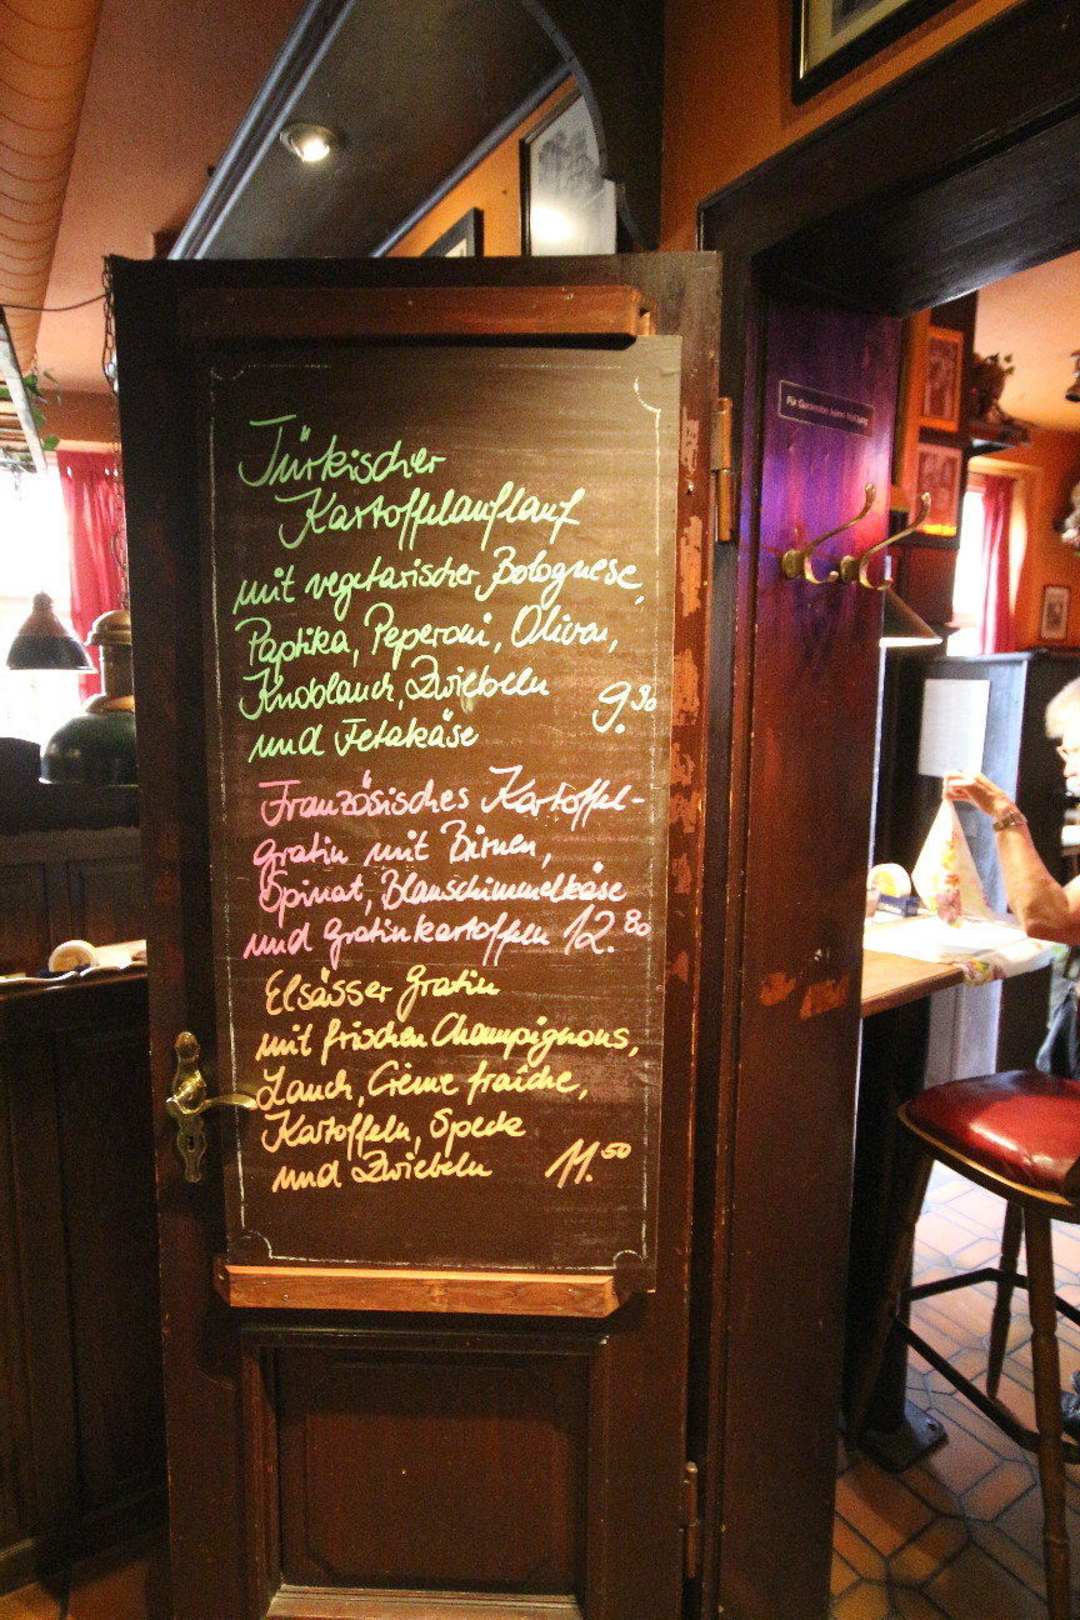 Türkischer
Kartoffelauflauf
mit vegetarischer Bolognese,
Paprika, Peperoni, Oliven,
Knoblauch, Zwiebeln
und Fetakäse 9.90
Französisches Kartoffel-
gratin mit Birnen,
Spinat, Blauschimmelkäse
und Gratinkartoffeln 12.80
Elsässer Gratin
mit frischen Champignons,
Lauch, Crème fraîche,
Kartoffeln, Speck
und Zwiebeln 11.50
Für Garderobe keine Haftung